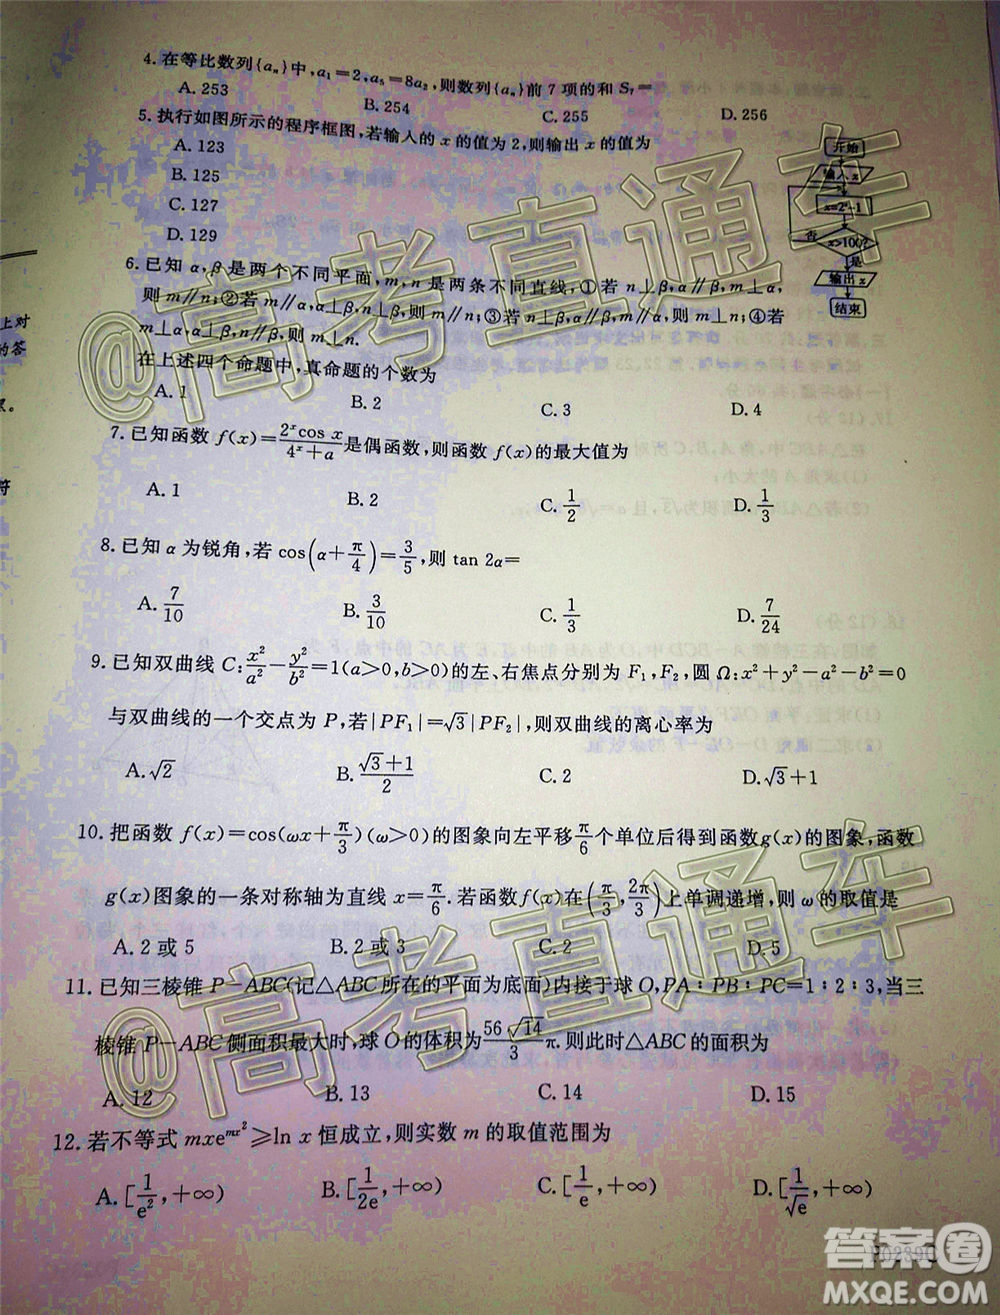 4. 在等比数列{aₙ}中,a₁=2,a₅=8a₂,则数列{aₙ}前 7 项的和 S₇=
A. 253 B. 254 C. 255 D. 256
5. 执行如图所示的程序框图,若输入的 x 的值为 2,则输出 x 的值为
A. 123
B. 125
C. 127
D. 129
开始
输入 x
x=2ˣ-1
否 x>100?
是
输出 x
结束
6. 已知 α,β 是两个不同平面,m,n 是两条不同直线,①若 n⊥β,α∥β,m⊥α,
则 m∥n;②若 m∥α,α⊥β,n⊥β,则 m∥n;③若 n⊥β,α∥β,m∥α,则 m⊥n;④若
m⊥α,α⊥β,n∥β,则 m⊥n.
在上述四个命题中,真命题的个数为
A. 1 B. 2 C. 3 D. 4
7. 已知函数 f(x)=2ˣcos x/(4ˣ+a)是偶函数,则函数 f(x)的最大值为
A. 1 B. 2 C. 1/2 D. 1/3
8. 已知 α 为锐角,若 cos(α+π/4)=3/5,则 tan 2α=
A. 7/10 B. 3/10 C. 1/3 D. 7/24
9. 已知双曲线 C:x²/a²-y²/b²=1(a>0,b>0)的左、右焦点分别为 F₁,F₂,圆 Ω:x²+y²-a²-b²=0
与双曲线的一个交点为 P,若|PF₁|=√3|PF₂|,则双曲线的离心率为
A. √2 B. (√3+1)/2 C. 2 D. √3+1
10. 把函数 f(x)=cos(ωx+π/3)(ω>0)的图象向左平移π/6个单位后得到函数g(x)的图象,函数
g(x)图象的一条对称轴为直线 x=π/6. 若函数f(x)在(π/3,2π/3)上单调递增,则 ω的取值是
A. 2 或 5 B. 2 或 3 C. 2 D. 5
11. 已知三棱锥 P-ABC(记△ABC所在的平面为底面)内接于球 O,PA:PB:PC=1:2:3,当三
棱锥 P-ABC侧面积最大时,球 O 的体积为56√14/3π. 则此时△ABC的面积为
A. 12 B. 13 C. 14 D. 15
12. 若不等式 mxe^(mx²)≥ln x 恒成立,则实数 m 的取值范围为
A. [1/e²,+∞) B. [1/2e,+∞) C. [1/e,+∞) D. [1/√e,+∞)
上对
的答
符
@高考直通车
@高考直通车
答案圈
MXQE.COM